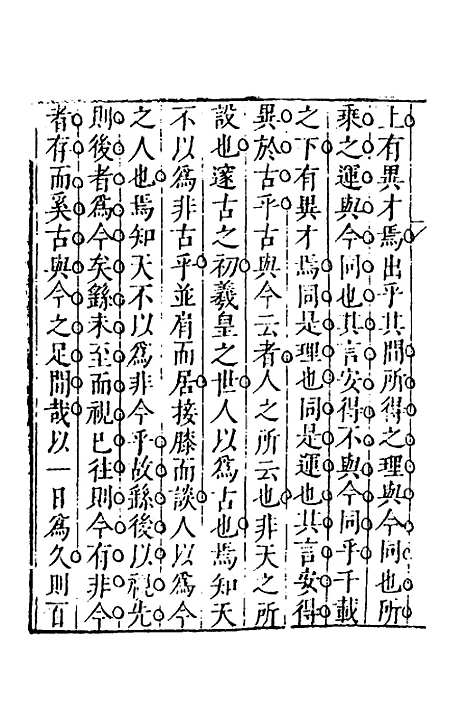 上有異才焉出乎其間所得之理與今同也所
乘之運與今同也其言安得不與今同乎千載
之下有異才焉同是理也同是運也其言安得
異於古乎古與今云者人之所云也非天之所
設也邃古之初羲皇之世人以爲古也焉知天
不以爲非古乎並肩而居接膝而談人以爲今
之人也焉知天不以爲非今乎故繇後以視先
則後者爲今矣繇未至而視已往則今有非今
者存而奚古與今之足間哉以一日爲久則百